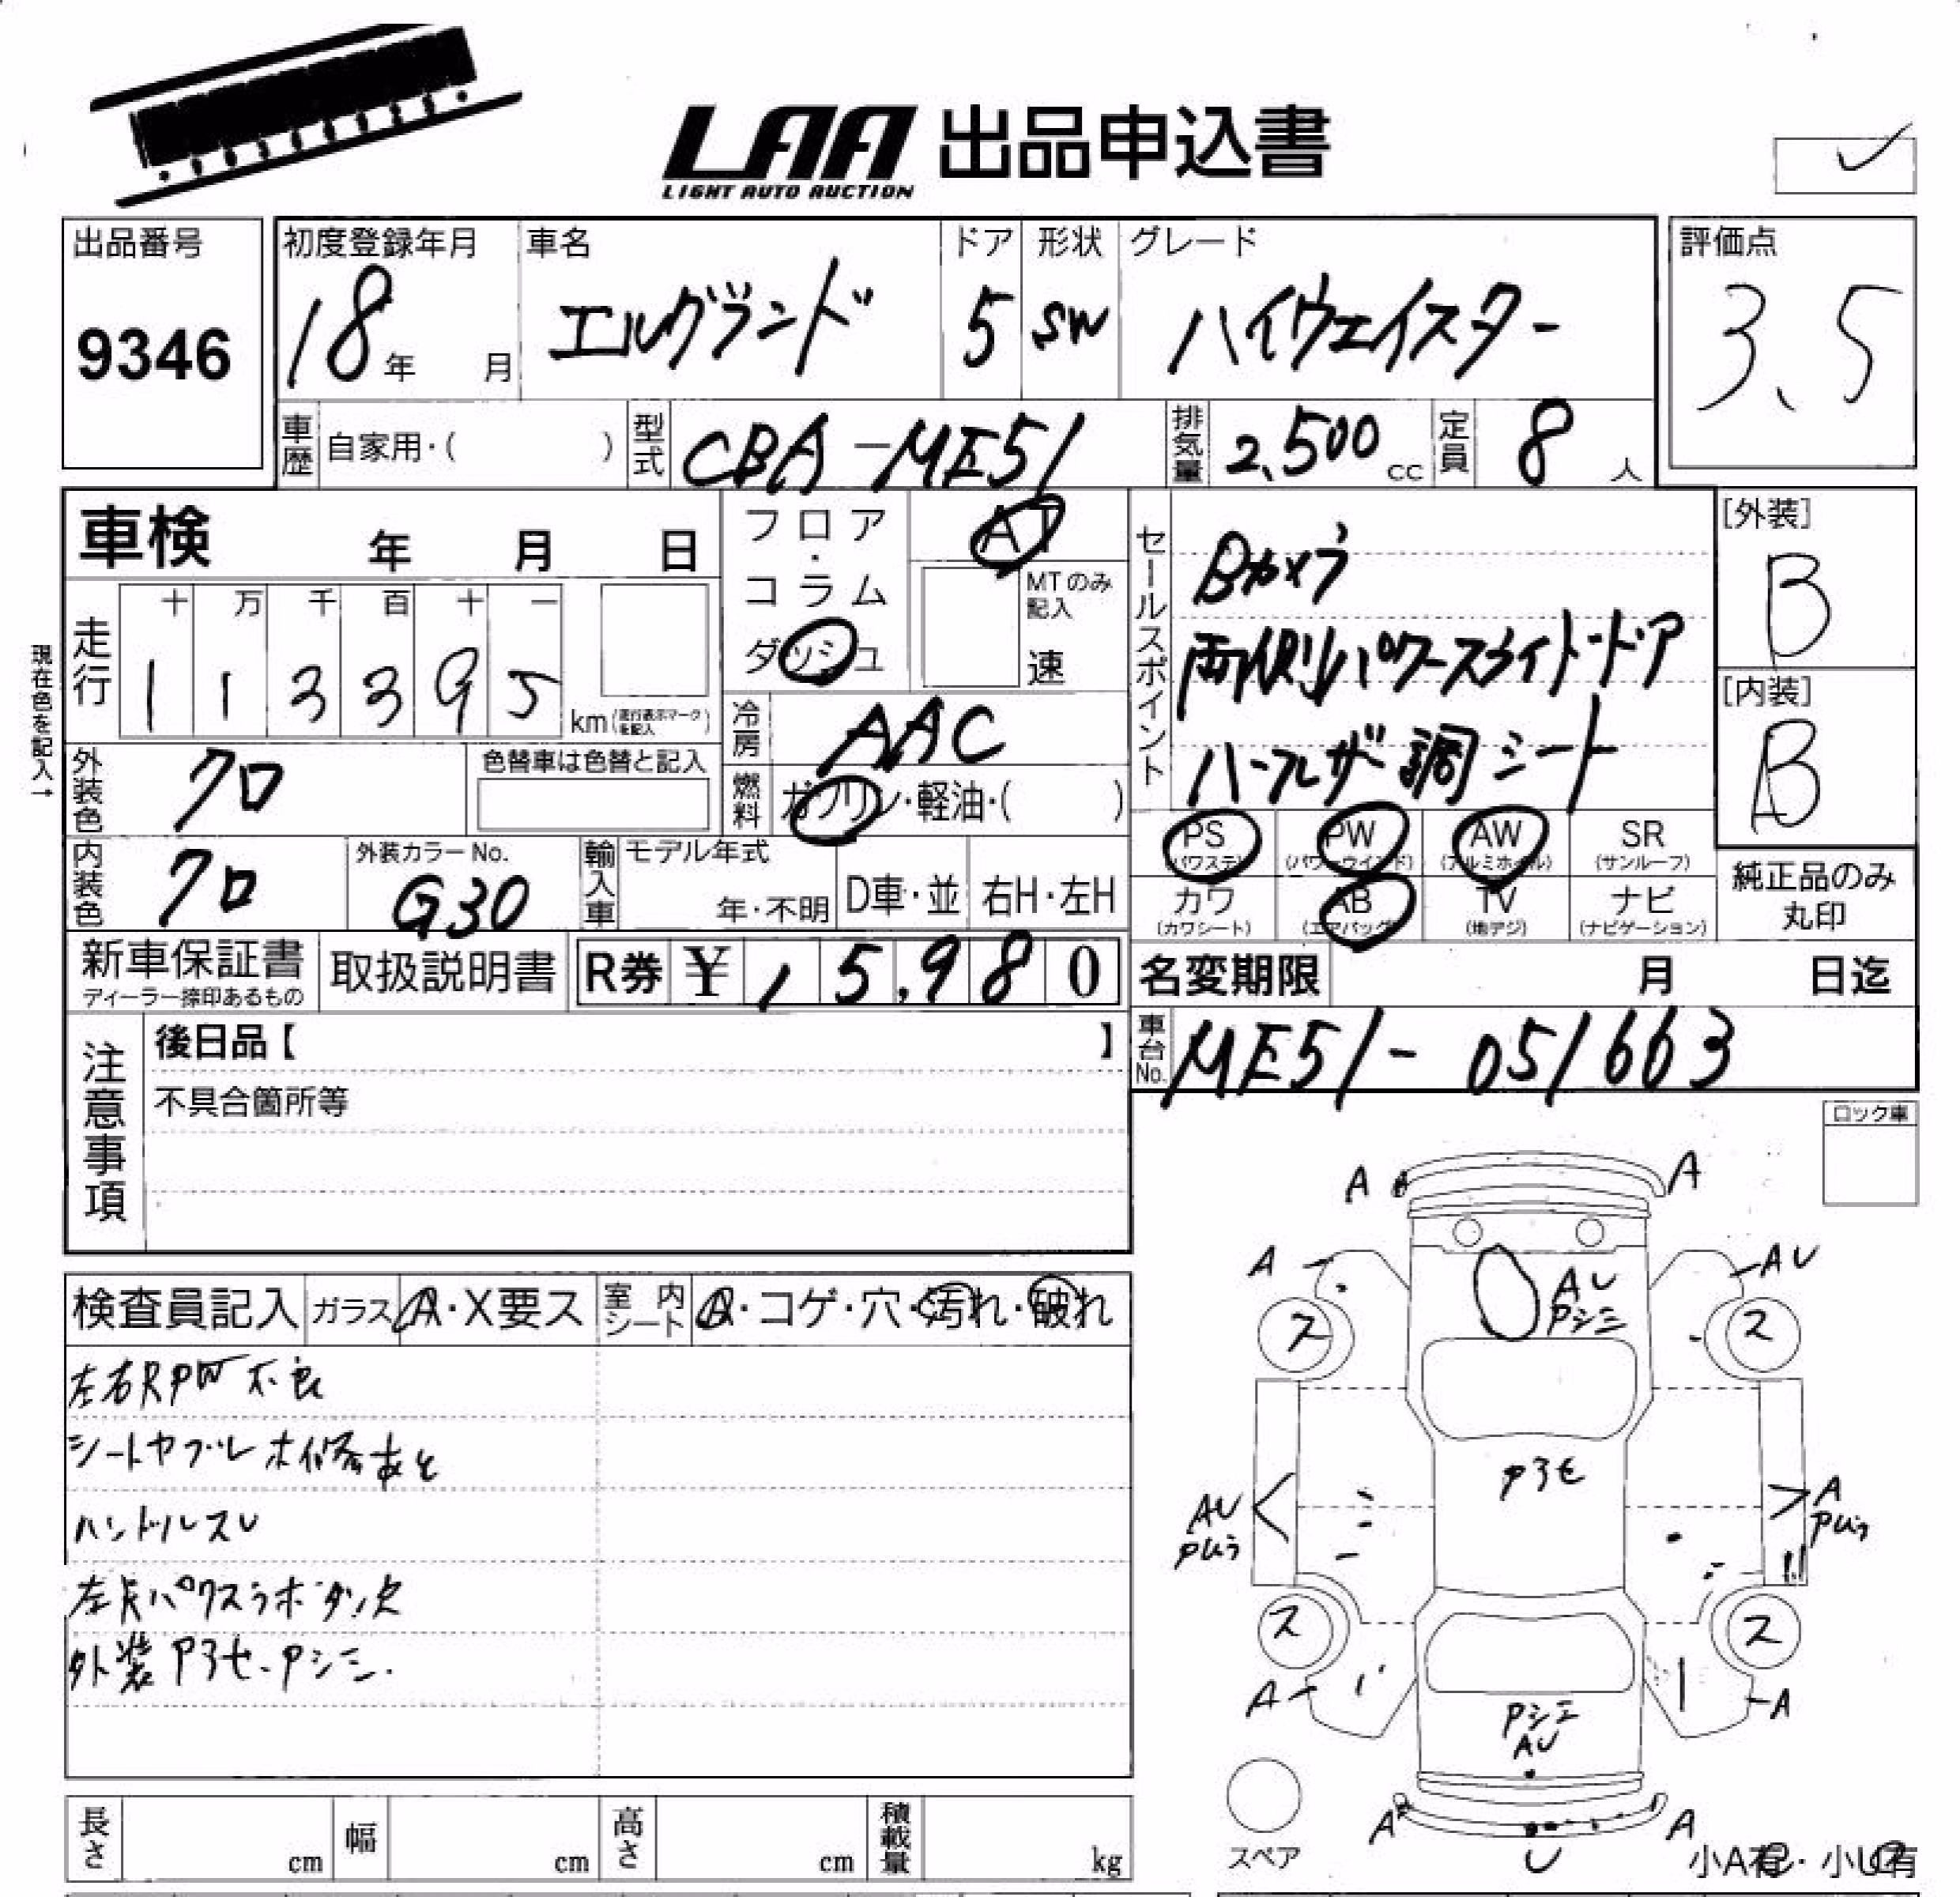 LAA 出品申込書
LIGHT AUTO AUCTION
出品番号
9346
初度登録年月
18年 月
車名
エルグランド
ドア
5
形状
SW
グレード
ハイウェイスター
評価点
3.5
車歴 自家用・( )
型式 CBA-ME51
排気量 2,500 cc
定員 8 人
車検 年 月 日
フロア・コラム
ダッシュ
AT
MTのみ記入
速
走行
十 万 千 百 十 一
1 1 3 3 9 5
km (走行表示マークを記入)
現在色を記入→
冷房 AAC
燃料 ガソリン・軽油・( )
セールスポイント
Bカメラ
両側パワースライドドア
ハーフレザー調シート
[外装]
B
[内装]
B
外装色 クロ
色替車は色替と記入
内装色 クロ
外装カラーNo.
G30
輸入車 モデル年式
年・不明
D車・並
右H・左H
PS (パワステ)
PW (パワーウインド)
AW (アルミホイル)
SR (サンルーフ)
カワ (カワシート)
AB (エアバッグ)
TV (地デジ)
ナビ (ナビゲーション)
純正品のみ丸印
新車保証書
ディーラー捺印あるもの
取扱説明書
R券 ¥ 15,980
名変期限 月 日迄
車台No. ME51-051663
注意事項
後日品【 】
不具合箇所等
ロック車
検査員記入
ガラス A・X要ス
室内シート A・コゲ・穴・汚れ・破れ
左右RPW不良
シートヤブレ 補修あと
ハンドルスレ
左Fパワスラボタン欠
外装 Pアセ・Pシミ.
A A
A AU
AU
Pシミ
ス ス
Pアセ
AU A
ス ス
A A
Pシミ
AU
A A
U
スペア
小A有・小U有
長さ cm
幅 cm
高さ cm
積載量 kg